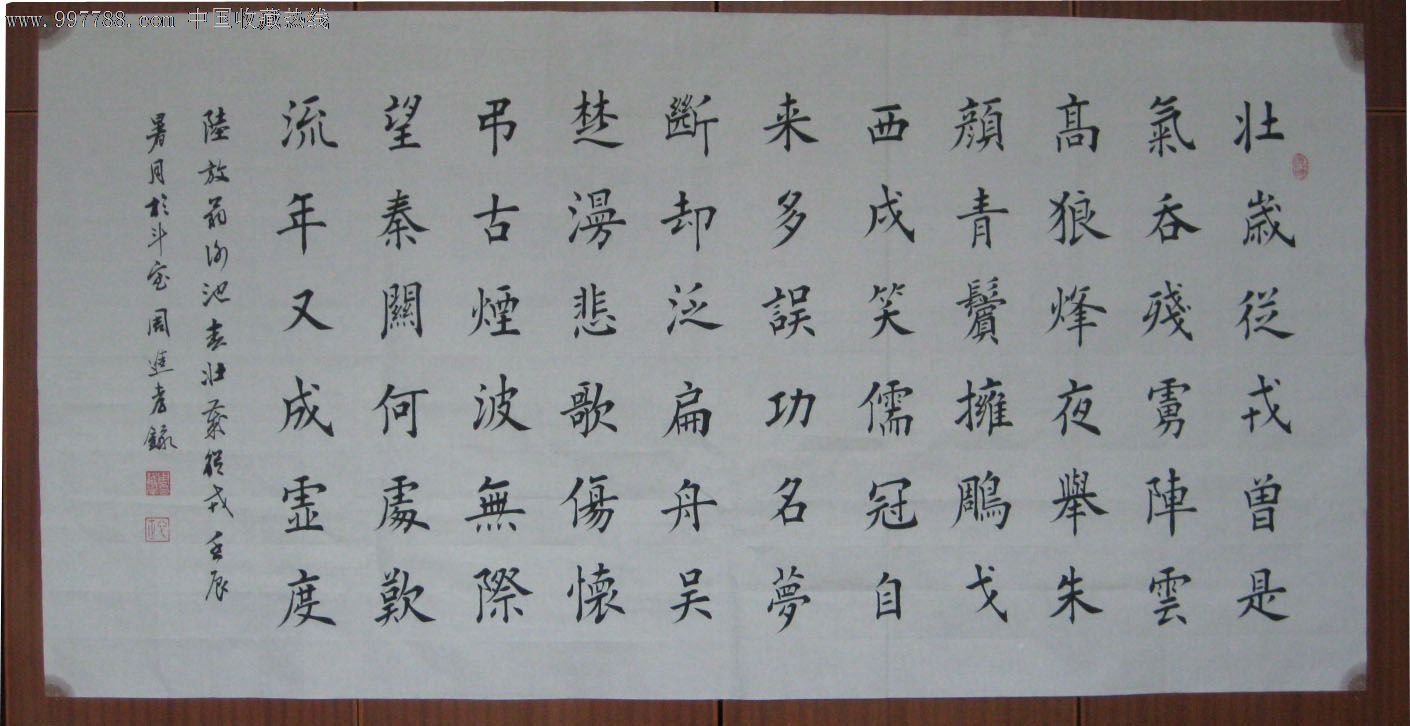 www.997788.com 中国收藏热线
壯歲從戎曾是
氣吞殘虜陣雲
高狼烽夜舉朱
顏青鬢擁雕戈
西戍笑儒冠自
来多誤功名夢
斷却泛扁舟吴
楚漫悲歌傷懷
弔古煙波無際
望秦關何處歎
流年又成虛度
陸放翁谢池春壮歲從戎 壬辰
暑月於斗室周進書錄